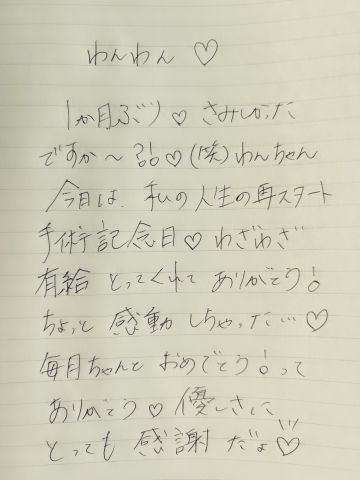 わんわん♡
1か月ぶり♡さみしかった
ですか〜?!?!♡(笑)わんちゃん
今日は、私の人生の再スタート
手術記念日♡わざわざ
有給とってくれてありがとう!
ちょっと感動しちゃった…♡
毎月ちゃんとおめでとう!って
ありがとう♡優しさに
とっても感謝だよ♡